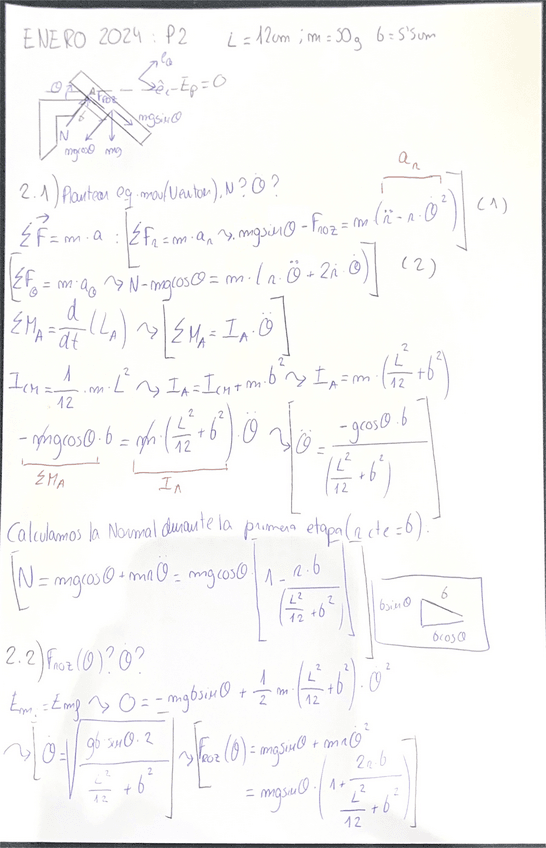 ENERO 2024 : P2 L = 12cm ; m = 50g b = 5'5cm
êθ
θ A FROZ êr Ep = 0
b mgsinθ
N
mgcosθ mg
2.1) Plantear eq. mov (Newton), N? θ̈?
ar
ΣF⃗ = m·a : [ΣFr = m·ar ⇝ mgsinθ - Froz = m(r̈ - r·θ̇²)] (1)
[ΣFθ = m·aθ ⇝ N - mgcosθ = m·(r·θ̈ + 2ṙ·θ̇)] (2)
ΣMA = d/dt (LA) ⇝ [ΣMA = IA·θ̈]
ICM = 1/12 · m·L² ⇝ IA = ICM + m·b² ⇝ IA = m·(L²/12 + b²)
-mgcosθ·b = m·(L²/12 + b²)·θ̈ ⇝ [θ̈ = -gcosθ·b / (L²/12 + b²)]
ΣMA IA
Calculamos la Normal durante la primera etapa (r cte = b).
[N = mgcosθ + mrθ̈ = mgcosθ·[1 - r·b / (L²/12 + b²)]]
bsinθ b
bcosθ
2.2) Froz(θ)? θ̇?
Em₀ = Emf ⇝ 0 = -mgbsinθ + 1/2 m·(L²/12 + b²)·θ̇²
⇝ [θ̇ = √(gb·sinθ·2 / (L²/12 + b²))] ⇝ [Froz(θ) = mgsinθ + mrθ̇²
= mgsinθ·(1 + 2r·b / (L²/12 + b²))]